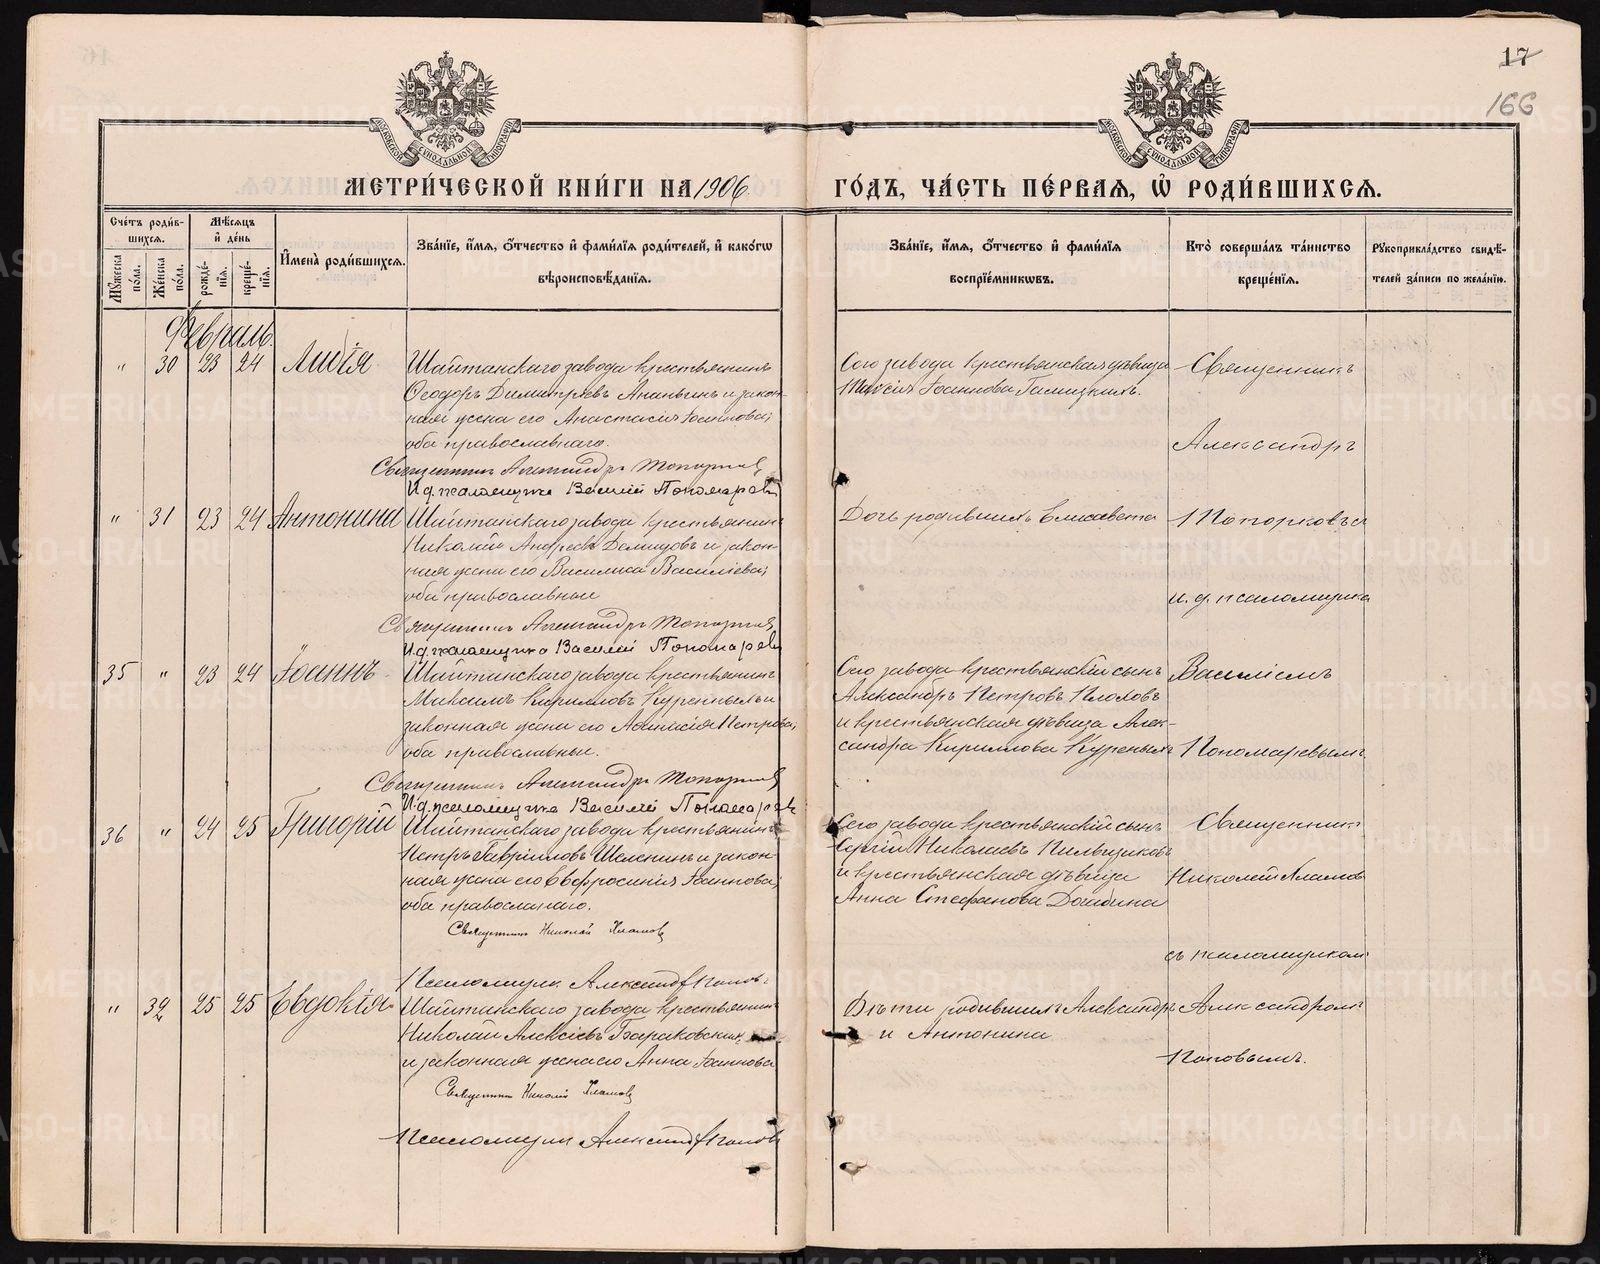 17
166
МЕТРИЧЕСКОЙ КНИГИ НА 1906 ГОДЪ, ЧАСТЬ ПЕРВАЯ, Ѡ РОДИВШИХСЯ.
Счетъ родившихся.
Мужеска пола.
Женска пола.
Мѣсяцъ и день
рожденія.
крещенія.
Имена родившихся.
Званіе, имя, отчество и фамилія родителей, и какогѡ
вѣроисповѣданія.
Званіе, имя, отчество и фамилія
воспріемникѡвъ.
Кто совершалъ таинство
крещенія.
Рукоприкладство свидѣ-
телей записи по желанію.
Февраль.
" 30 23 24 Лидія
Шайтанскаго завода крестьянинъ
Ѳеодоръ Димитріевъ Ананьинъ и закон-
ная жена его Анастасія Іоаннова;
оба православнаго.
Священникъ Александръ Топорковъ
И.д. псаломщика Василій Пономаревъ
Сего завода крестьянская дѣвица
Таисія Іоаннова
Священникъ
Александръ
" 31 23 24 Антонина
Шайтанскаго завода крестьянинъ
Николай Андреевъ Демидовъ и закон-
ная жена его Василиса Василіева;
оба православные
Священникъ Александръ Топорковъ
И.д. псаломщика Василій Пономаревъ
Дочь родившихъ Елисавета
Топорковъ съ
и. д. псаломщика
35 " 23 24 Іоаннъ
Шайтанскаго завода крестьянинъ
Максимъ Кирилловъ Куренныхъ и
законная жена его Аѳанасія Петрова;
оба православные.
Священникъ Александръ Топорковъ
И.д. псаломщика Василій Пономаревъ
Сего завода крестьянскій сынъ
Александръ Петровъ
и крестьянская дѣвица Алек-
сандра Кириллова Куренныхъ
Василіемъ
Пономаревымъ
36 " 24 25 Григорій
Шайтанскаго завода крестьянинъ
Петръ Гавріиловъ Шеленинъ и закон-
ная жена его Евфросинія Іоаннова;
оба православнаго.
Священникъ Николай Хламовъ
Псаломщикъ Александръ Поповъ
Сего завода крестьянскій сынъ
Сергій Николаевъ Пильщиковъ
и крестьянская дѣвица
Анна Стефанова
Священникъ
Николай Хламовъ
съ псаломщикомъ
" 32 25 25 Евдокія
Шайтанскаго завода крестьянинъ
Николай Алексіевъ Бараковскихъ
и законная жена его Анна Іоаннова
Священникъ Николай Хламовъ
Псаломщикъ Александръ Поповъ
Дѣти родившихъ Александръ
и Антонина
Александромъ
Поповымъ.
METRIKI.GASO-URAL.RU